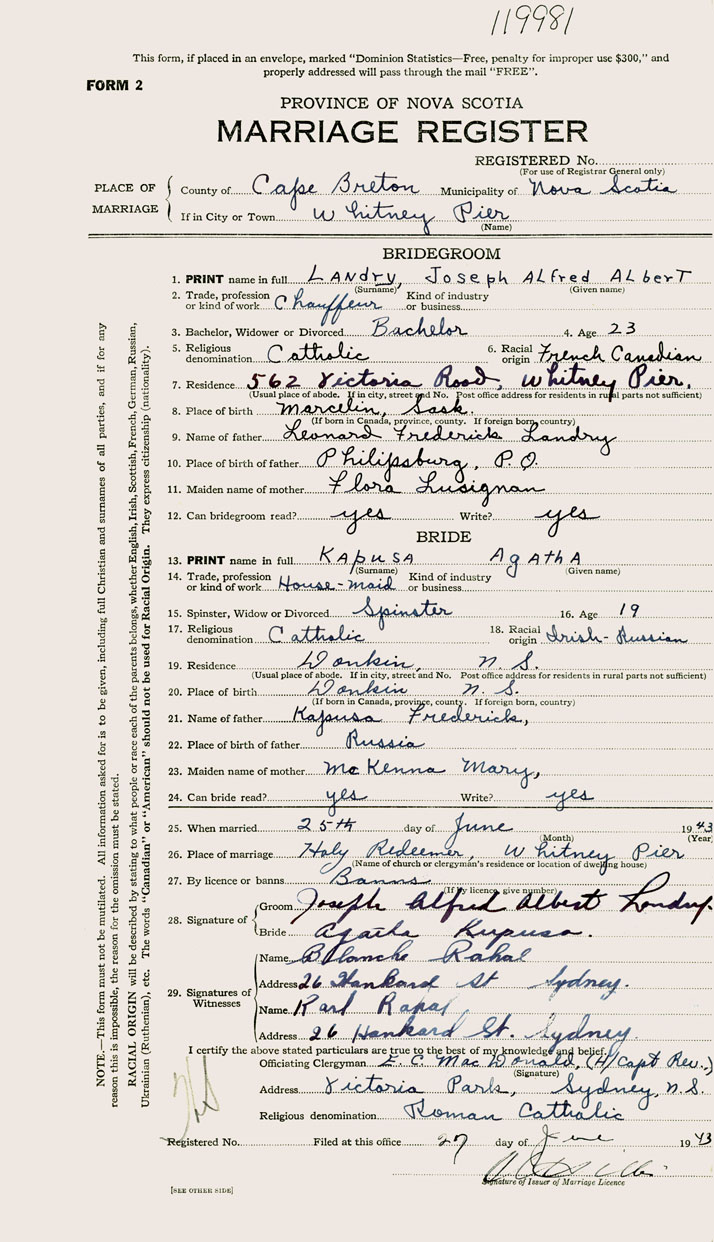 119981
This form, if placed in an envelope, marked "Dominion Statistics—Free, penalty for improper use $300," and
properly addressed will pass through the mail "FREE".
FORM 2
PROVINCE OF NOVA SCOTIA
MARRIAGE REGISTER
REGISTERED No.
(For use of Registrar General only)
PLACE OF MARRIAGE
County of Cape Breton Municipality of Nova Scotia
If in City or Town Whitney Pier
(Name)
BRIDEGROOM
1. PRINT name in full LAndry, Joseph ALfred ALberT
(Surname) (Given name)
2. Trade, profession or kind of work Chauffeur Kind of industry or business
3. Bachelor, Widower or Divorced Bachelor 4. Age 23
5. Religious denomination Catholic 6. Racial origin French Canadian
7. Residence 562 Victoria Road, Whitney Pier.
(Usual place of abode. If in city, street and No. Post office address for residents in rural parts not sufficient)
8. Place of birth Marcelin, Sask.
(If born in Canada, province, county. If foreign born, country)
9. Name of father Leonard Frederick Landry
10. Place of birth of father Philipsburg, P.Q.
11. Maiden name of mother Flora Lusignan
12. Can bridegroom read? yes Write? yes
BRIDE
13. PRINT name in full KApusA AgAthA
(Surname) (Given name)
14. Trade, profession or kind of work House-maid Kind of industry or business
15. Spinster, Widow or Divorced Spinster 16. Age 19
17. Religious denomination Catholic 18. Racial origin Irish-Russian
19. Residence Donkin, N.S.
(Usual place of abode. If in city, street and No. Post office address for residents in rural parts not sufficient)
20. Place of birth Donkin N.S.
(If born in Canada, province, county. If foreign born, country)
21. Name of father Kapusa Frederick,
22. Place of birth of father Russia
23. Maiden name of mother McKenna Mary,
24. Can bride read? yes Write? yes
25. When married 25th day of June 1943
(Month) (Year)
26. Place of marriage Holy Redeemer, Whitney Pier
(Name of church or clergyman's residence or location of dwelling house)
27. By licence or banns Banns
(If by licence, give number)
28. Signature of
Groom Joseph Alfred Albert Landry
Bride Agatha Kapusa.
29. Signatures of Witnesses
Name Blanche Rahal
Address 26 Hankard St Sydney.
Name Karl Rahal
Address 26 Hankard St. Sydney.
I certify the above stated particulars are true to the best of my knowledge and belief.
Officiating Clergyman E. C. MacDonald, (H/Capt Rev.)
(Signature)
Address Victoria Park, Sydney, N.S.
Religious denomination Roman Catholic
Registered No. Filed at this office 27 day of June 1943
Signature of Issuer of Marriage Licence
[SEE OTHER SIDE]
NOTE.—This form must not be mutilated. All information asked for is to be given, including full Christian and surnames of all parties, and if for any
reason this is impossible, the reason for the omission must be stated.
RACIAL ORIGIN will be described by stating to what people or race each of the parents belongs, whether English, Irish, Scottish, French, German, Russian,
Ukrainian (Ruthenian), etc. The words "Canadian" or "American" should not be used for Racial Origin. They express citizenship (nationality).